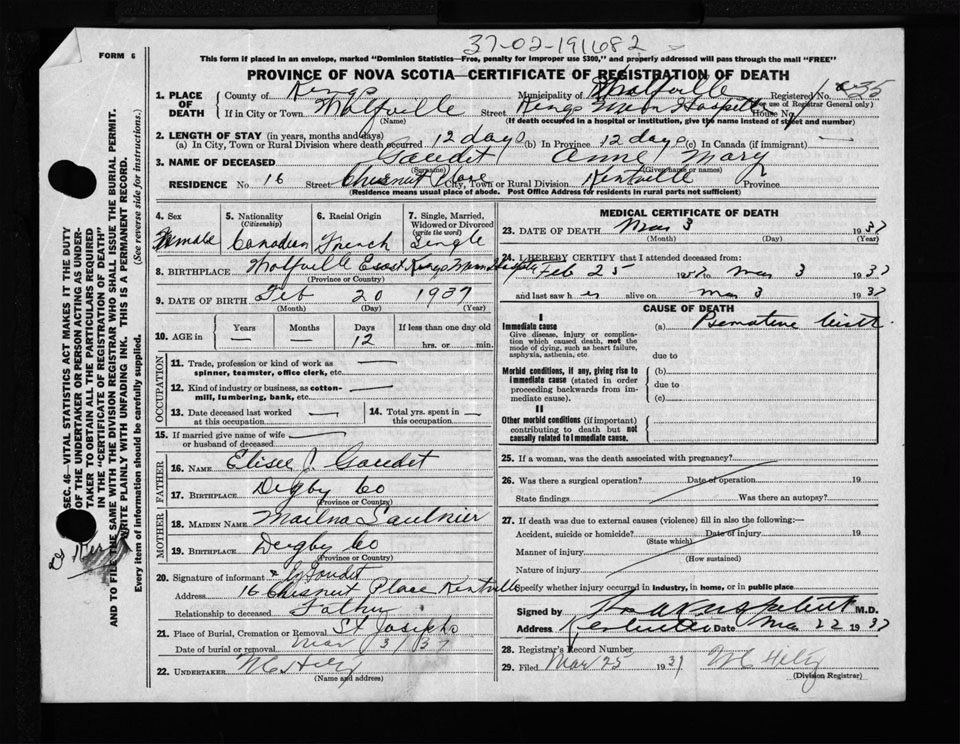 37-02-191682
FORM 6
This form if placed in an envelope, marked "Dominion Statistics—Free, penalty for improper use $300," and properly addressed will pass through the mail "FREE"
PROVINCE OF NOVA SCOTIA—CERTIFICATE OF REGISTRATION OF DEATH
1. PLACE OF DEATH
County of Kings Municipality of Wolfville Registered No.
(For use of Registrar General only)
If in City or Town Wolfville Street Kings Mem Hospital House No.
(Name) (If death occurred in a hospital or institution, give the name instead of street and number)
2. LENGTH OF STAY (in years, months and days)
(a) In City, Town or Rural Division where death occurred 12 days (b) In Province 12 days (c) In Canada (if immigrant) —
3. NAME OF DECEASED Gaudet Anne Mary
(Surname) (Given name or names)
RESIDENCE No 16 Street Chesnut Place City, Town or Rural Division Kentville Province
(Residence means usual place of abode. Post Office Address for residents in rural parts not sufficient)
4. Sex
Female
5. Nationality
(Citizenship)
Canadian
6. Racial Origin
French
7. Single, Married, Widowed or Divorced
(write the word)
Single
8. BIRTHPLACE Wolfville Kings Mem Hospital
(Province or Country)
9. DATE OF BIRTH Feb 20 1937
(Month) (Day) (Year)
10. AGE in
Years Months Days If less than one day old
— — 12 hrs. or min.
OCCUPATION
11. Trade, profession or kind of work as
spinner, teamster, office clerk, etc. —
12. Kind of industry or business, as cotton-
mill, lumbering, bank, etc. —
13. Date deceased last worked
at this occupation —
14. Total yrs. spent in
this occupation —
15. If married give name of wife
or husband of deceased —
FATHER
16. NAME Elisee J Gaudet
17. BIRTHPLACE Digby Co
(Province or Country)
MOTHER
18. MAIDEN NAME Saulnier
19. BIRTHPLACE Digby Co
(Province or Country)
20. Signature of informant Gaudet
Address 16 Chesnut Place Kentville
Relationship to deceased Father
21. Place of Burial, Cremation or Removal St Josephs
Date of burial or removal Mar 3/37
22. UNDERTAKER
(Name and address)
MEDICAL CERTIFICATE OF DEATH
23. DATE OF DEATH Mar 3 1937
(Month) (Day) (Year)
24. I HEREBY CERTIFY that I attended deceased from:
Feb 25 1937 to Mar 3 1937
and last saw her alive on Mar 3 1937
CAUSE OF DEATH
I
Immediate cause
Give disease, injury or complication which caused death, not the mode of dying, such as heart failure, asphyxia, asthenia, etc
(a) Premature birth
due to
Morbid conditions, if any, giving rise to immediate cause (stated in order proceeding backwards from immediate cause).
(b)
due to
(c)
II
Other morbid conditions (if important) contributing to death but not causally related to immediate cause.
25. If a woman, was the death associated with pregnancy?
26. Was there a surgical operation? Date of operation 19
State findings Was there an autopsy?
27. If death was due to external causes (violence) fill in also the following:—
Accident, suicide or homicide? Date of injury 19
(State which)
Manner of injury
(How sustained)
Nature of injury
Specify whether injury occurred in industry, in home, or in public place
Signed by M.D.
Address Kentville Date Mar 22 1937
28. Registrar's Record Number
29. Filed Mar 25 1937
(Division Registrar)
SEC. 46—VITAL STATISTICS ACT MAKES IT THE DUTY
OF THE UNDERTAKER OR PERSON ACTING AS UNDER-
TAKER TO OBTAIN ALL THE PARTICULARS REQUIRED
IN THE "CERTIFICATE OF REGISTRATION OF DEATH"
AND TO FILE THE SAME WITH THE DIVISION REGISTRAR WHO SHALL ISSUE THE BURIAL PERMIT.
WRITE PLAINLY WITH UNFADING INK. THIS IS A PERMANENT RECORD.
Every item of information should be carefully supplied. (See reverse side for instructions.)